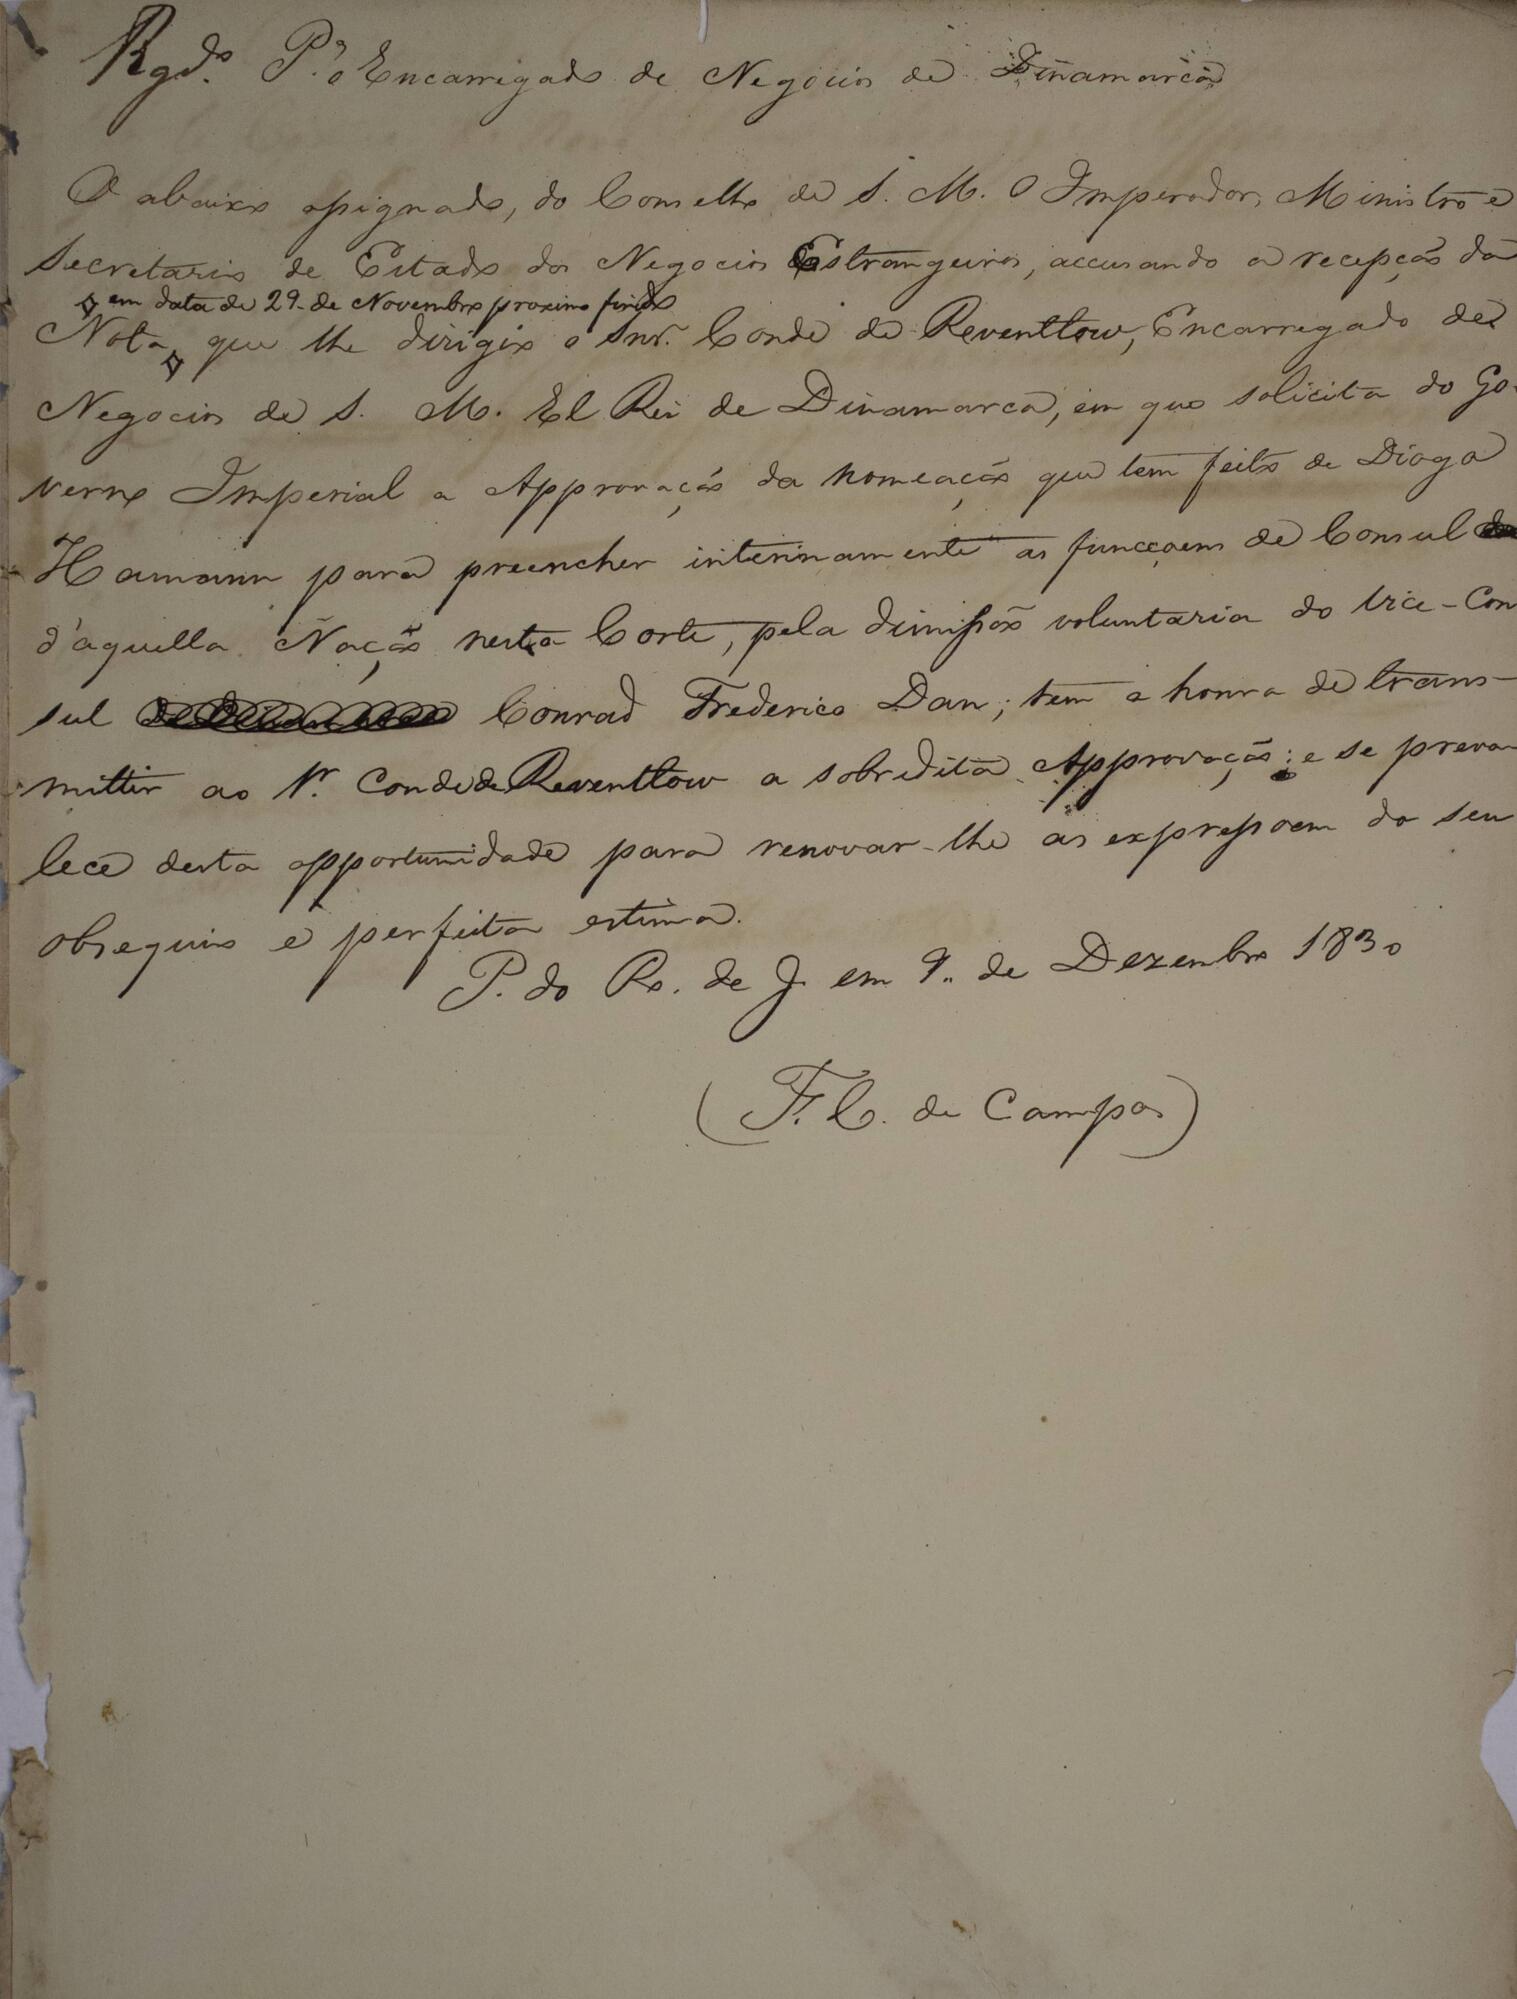 Rgd.º P.ª o Encarregado de Negocios de Dinamarca
O abaixo assignado, do Conselho de S. M. O Imperador, Ministro e
Secretario de Estado dos Negocios Estrangeiros, accusando a recepção da
◊ em data de 29 de Novembro proximo findo
Nota ◊ que lhe dirigio o Snr. Conde de Reventlow, Encarregado de
Negocios de S. M. El Rei de Dinamarca, em que solicita do Go-
verno Imperial a Approvação da nomeação que tem feito de Diogo
Hamann para preencher interinamente as funcçoens de Consul
d'aquella Nação nesta Corte, pela dimissão voluntaria do Vice-Con
sul Conrad Frederico Dan; tem a honra de trans-
mittir ao Sr. Conde de Reventlow a sobredita Approvação; e se preva
lece desta opportunidade para renovar-lhe as expressoens do seu
obsequio e perfeita estima.
P. do Ro. de J. em 9 de Dezembro 1830
(F. C. de Campos)